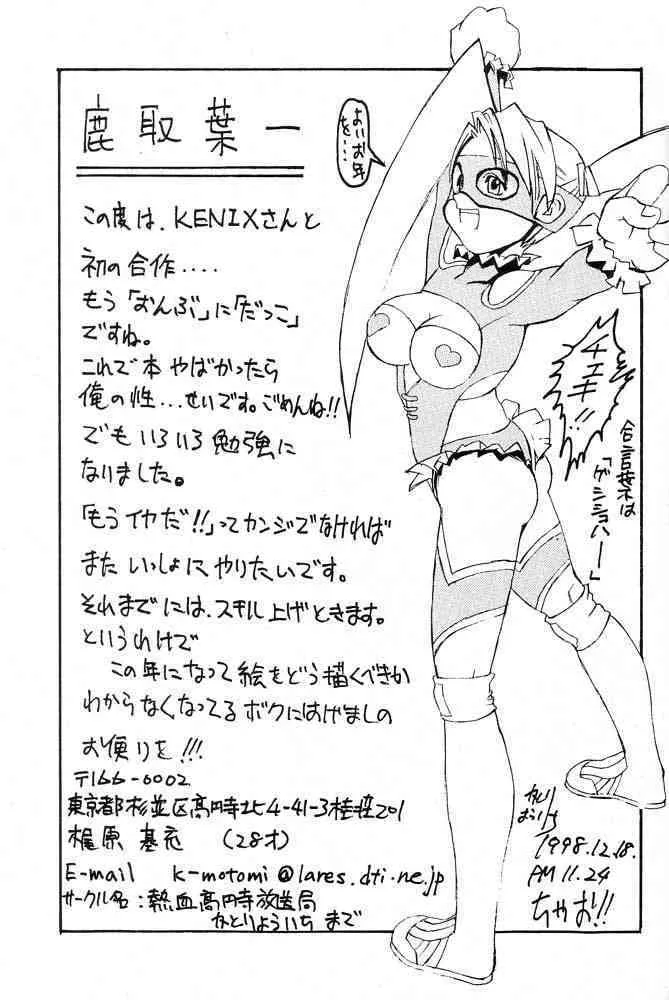 鹿取葉一
よいお年
を…
この度は、KENIXさんと
初の合作....
もう「おんぶ」に「だっこ」
ですね。
これで本やばかったら
俺の性...せいです。ごめんね!!
でもいろいろ勉強に
なりました。
「もうイヤだ!!」ってカンジでなければ
またいっしょにやりたいです。
それまでには、スキル上げときます。
というわけで
この年になって絵をどう描くべきか
わからなくなってるボクにはげましの
お便りを!!!
〒166-0002
東京都杉並区高円寺北4-41-3桂荘201
梶原 基 (28才)
E-mail k-motomi@lares.dti.ne.jp
サークル名:熱血高円寺放送局
かとりょういちまで
チェキ!!
合言葉は
「ゲシショハー」
1998.12.18.
AM 11.24
ちゃお!!!